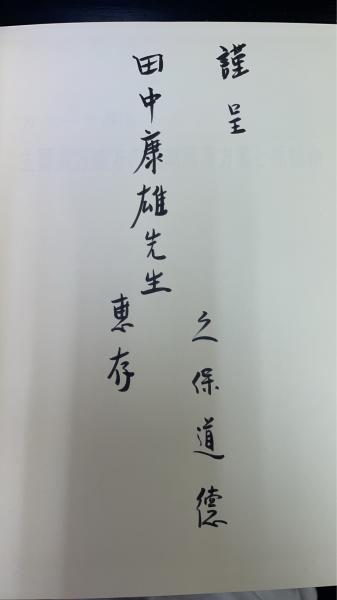 謹呈
久保道徳
田中康雄先生
恵存